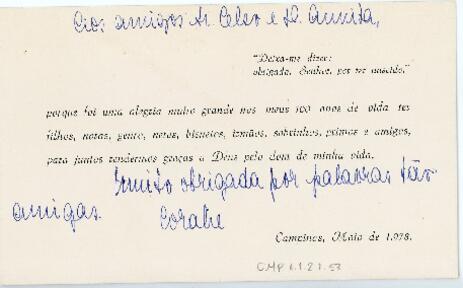 Aos amigos Sr. Celso e D. Annita,
"Deixa-me dizer:
obrigada, Senhor, por ter nascido."
porque foi uma alegria muito grande nos meus 100 anos de vida ter
filhos, noras, genro, netos, bisnetos, irmãos, sobrinhos, primos e amigos,
para juntos rendermos graças a Deus pelo dom de minha vida.
muito obrigada por palavras tão
amigas.
Campinas, Maio de 1.978.
CMP 1.1.21.53